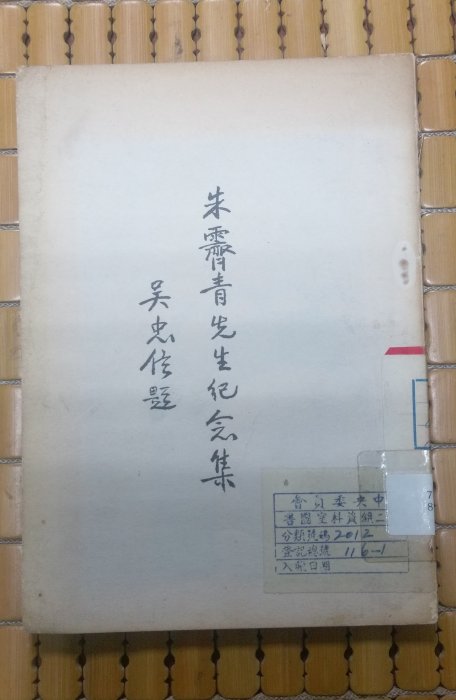 朱霽青先生紀念集
吳忠信題
會員委央中
書圖室料資組二
分類號碼 2012
登記總號 116-1
入藏日期
7
8